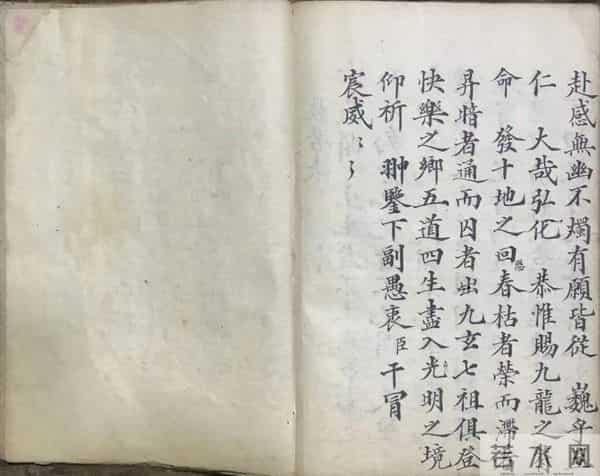 赴感無幽不燭有願皆從 巍乎
仁 大哉弘化 恭惟賜九龍之
命 發十地之回春枯者榮而滯
昇暗者通而囚者出九玄七祖俱登
快樂之鄉五道四生盡入光明之境
仰祈 翀鑒下副愚衷臣干冒
宸威